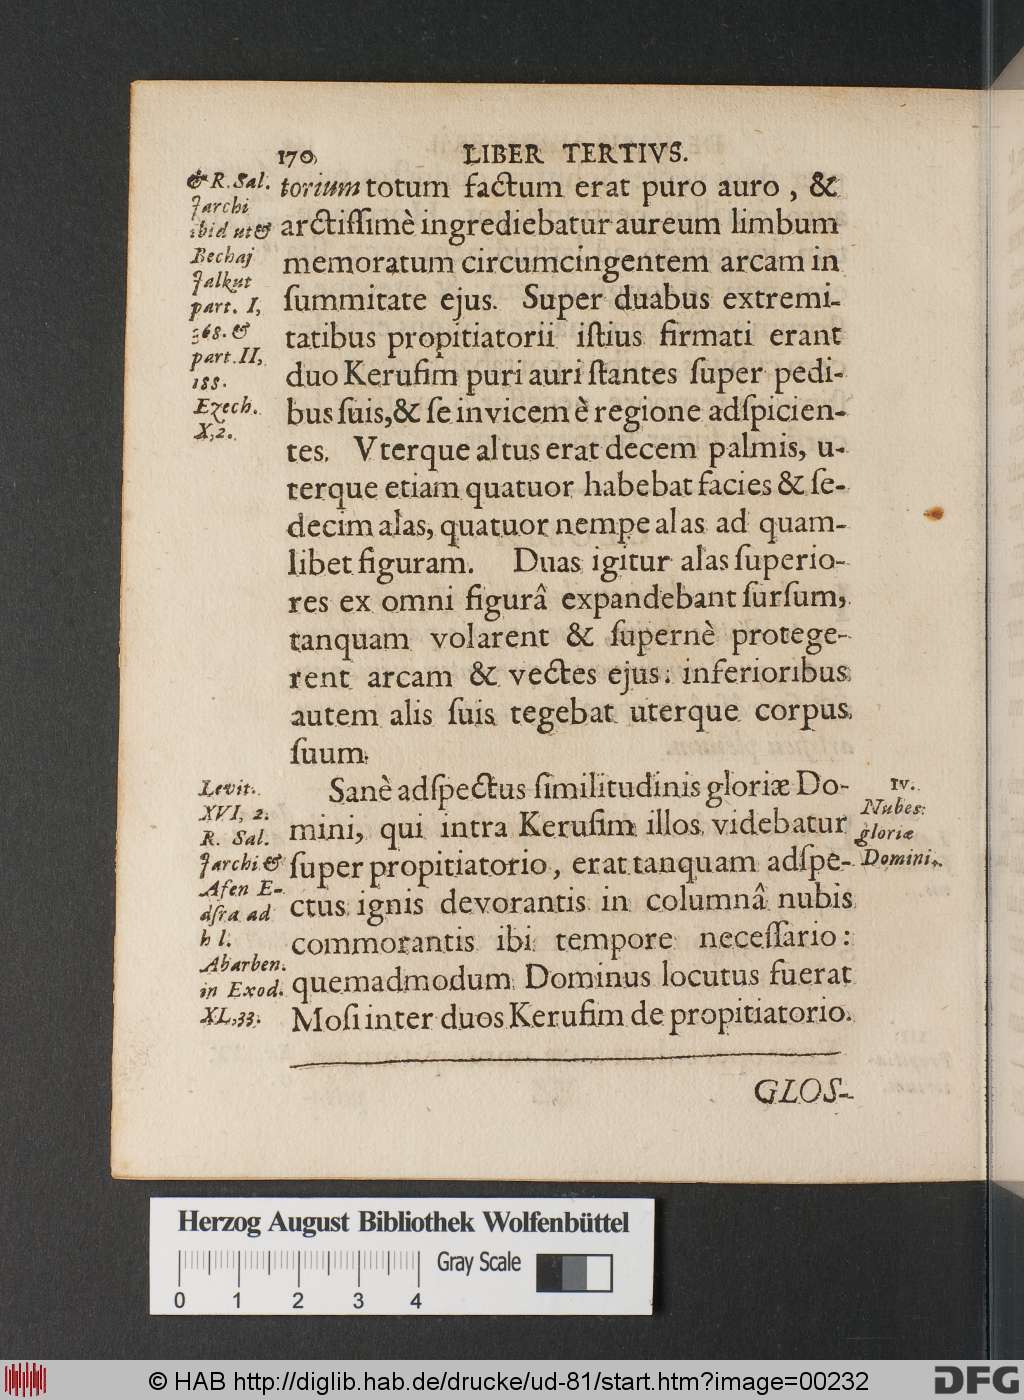 170 LIBER TERTIVS.
& R. Sal.
Jarchi
ibid ut &
Bechaj
Jalkut
part. I,
368. &
part. II,
188.
Ezech.
X, 2.
torium totum factum erat puro auro, &
arctiſſimè ingrediebatur aureum limbum
memoratum circumcingentem arcam in
ſummitate ejus. Super duabus extremi-
tatibus propitiatorii iſtius firmati erant
duo Keruſim puri auri ſtantes ſuper pedi-
bus ſuis, & ſe invicem è regione adſpicien-
tes. Vterque altus erat decem palmis, u-
terque etiam quatuor habebat facies & ſe-
decim alas, quatuor nempe alas ad quam-
libet figuram. Duas igitur alas ſuperio-
res ex omni figurâ expandebant ſurſum,
tanquam volarent & ſupernè protege-
rent arcam & vectes ejus: inferioribus
autem alis ſuis tegebat uterque corpus
ſuum.
Levit.
XVI, 2.
R. Sal.
Jarchi &
Afen E-
dſra ad
h l.
Abarben.
in Exod.
XL, 33.
Sanè adſpectus ſimilitudinis gloriæ Do-
mini, qui intra Keruſim illos videbatur
ſuper propitiatorio, erat tanquam adſpe-
ctus ignis devorantis in columnâ nubis
commorantis ibi tempore neceſſario:
quemadmodum Dominus locutus fuerat
Moſi inter duos Keruſim de propitiatorio.
IV.
Nubes
gloriæ
Domini.
GLOS-
Herzog August Bibliothek Wolfenbüttel
Gray Scale
0 1 2 3 4
© HAB http://diglib.hab.de/drucke/ud-81/start.htm?image=00232
DFG